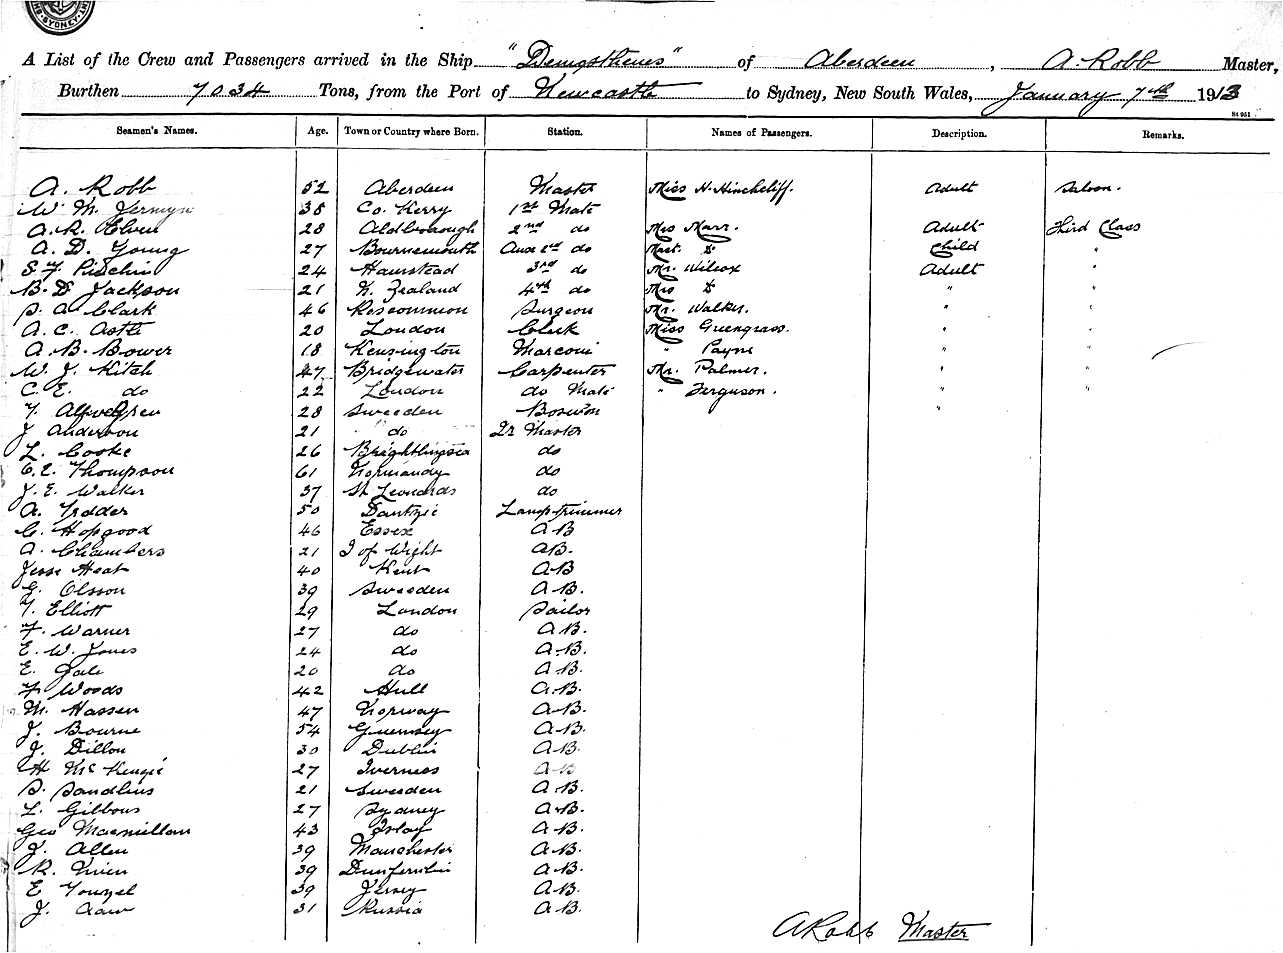 SYDNEY
A List of the Crew and Passengers arrived in the Ship "Demosthenes" of Aberdeen, A. Robb Master,
Burthen 7034 Tons, from the Port of Newcastle to Sydney, New South Wales, January 7th 1913
St 951
Seamen's Names. Age. Town or Country where Born. Station. Names of Passengers. Description. Remarks.
A. Robb 52 Aberdeen Master Miss H. Hinchcliff. Adult Saloon.
W. M. Jermyn 38 Co. Kerry 1st Mate
A. R. 28 Aldborough 2nd do Mrs Marr. Adult Third Class
A. D. Young 27 Bournemouth 2nd do Mast. D Child "
S. F. 24 Hampstead 3rd do Mr. Wilcox Adult "
B. D. Jackson 21 N. Zealand 4th do Mrs D " "
S. A. Clark 46 Roscommon Surgeon Mr. Walker. " "
A. C. Astle 20 London Clerk Miss Greengrass. " "
A. B. Bower 18 Kensington Marconi " Payne " "
W. J. Kitch 47 Bridgewater Carpenter Mr. Palmer. " "
C. E. do 22 London do Mate " Ferguson. " "
28 Sweeden Bosw'n "
J. Anderson 21 do Qr Master
L. Cooke 26 Brightlingsea do
C. E. Thompson 61 Normandy do
J. E. Walker 37 St Leonards do
A. 50 Dantzic Lamptrimmer
C. Hopgood 46 Essex A B
A. Chambers 21 I of Wight A B.
Jesse Heat 40 Kent A B
G. Olsson 39 Sweeden A B.
T. Elliott 29 London Sailor
F. Warner 27 do A B.
E. W. Jones 24 do A. B.
E. Gale 20 do A B.
F Woods 42 Hull A. B.
M. Hassen 47 Norway A. B.
J. Bourne 54 Guernsey A. B.
J. Dillon 30 Dublin A B.
H McKenzie 27 Iverness A B
S. Sandlins 21 Sweeden A B.
L. Gibbons 27 Sydney A. B.
Geo Macmillan 43 Islay A B.
J. Allen 39 Manchester A. B.
R. 39 Dunfermlin A B.
E 39 Jersey A B.
J. 31 Russia A B.
A Robb Master